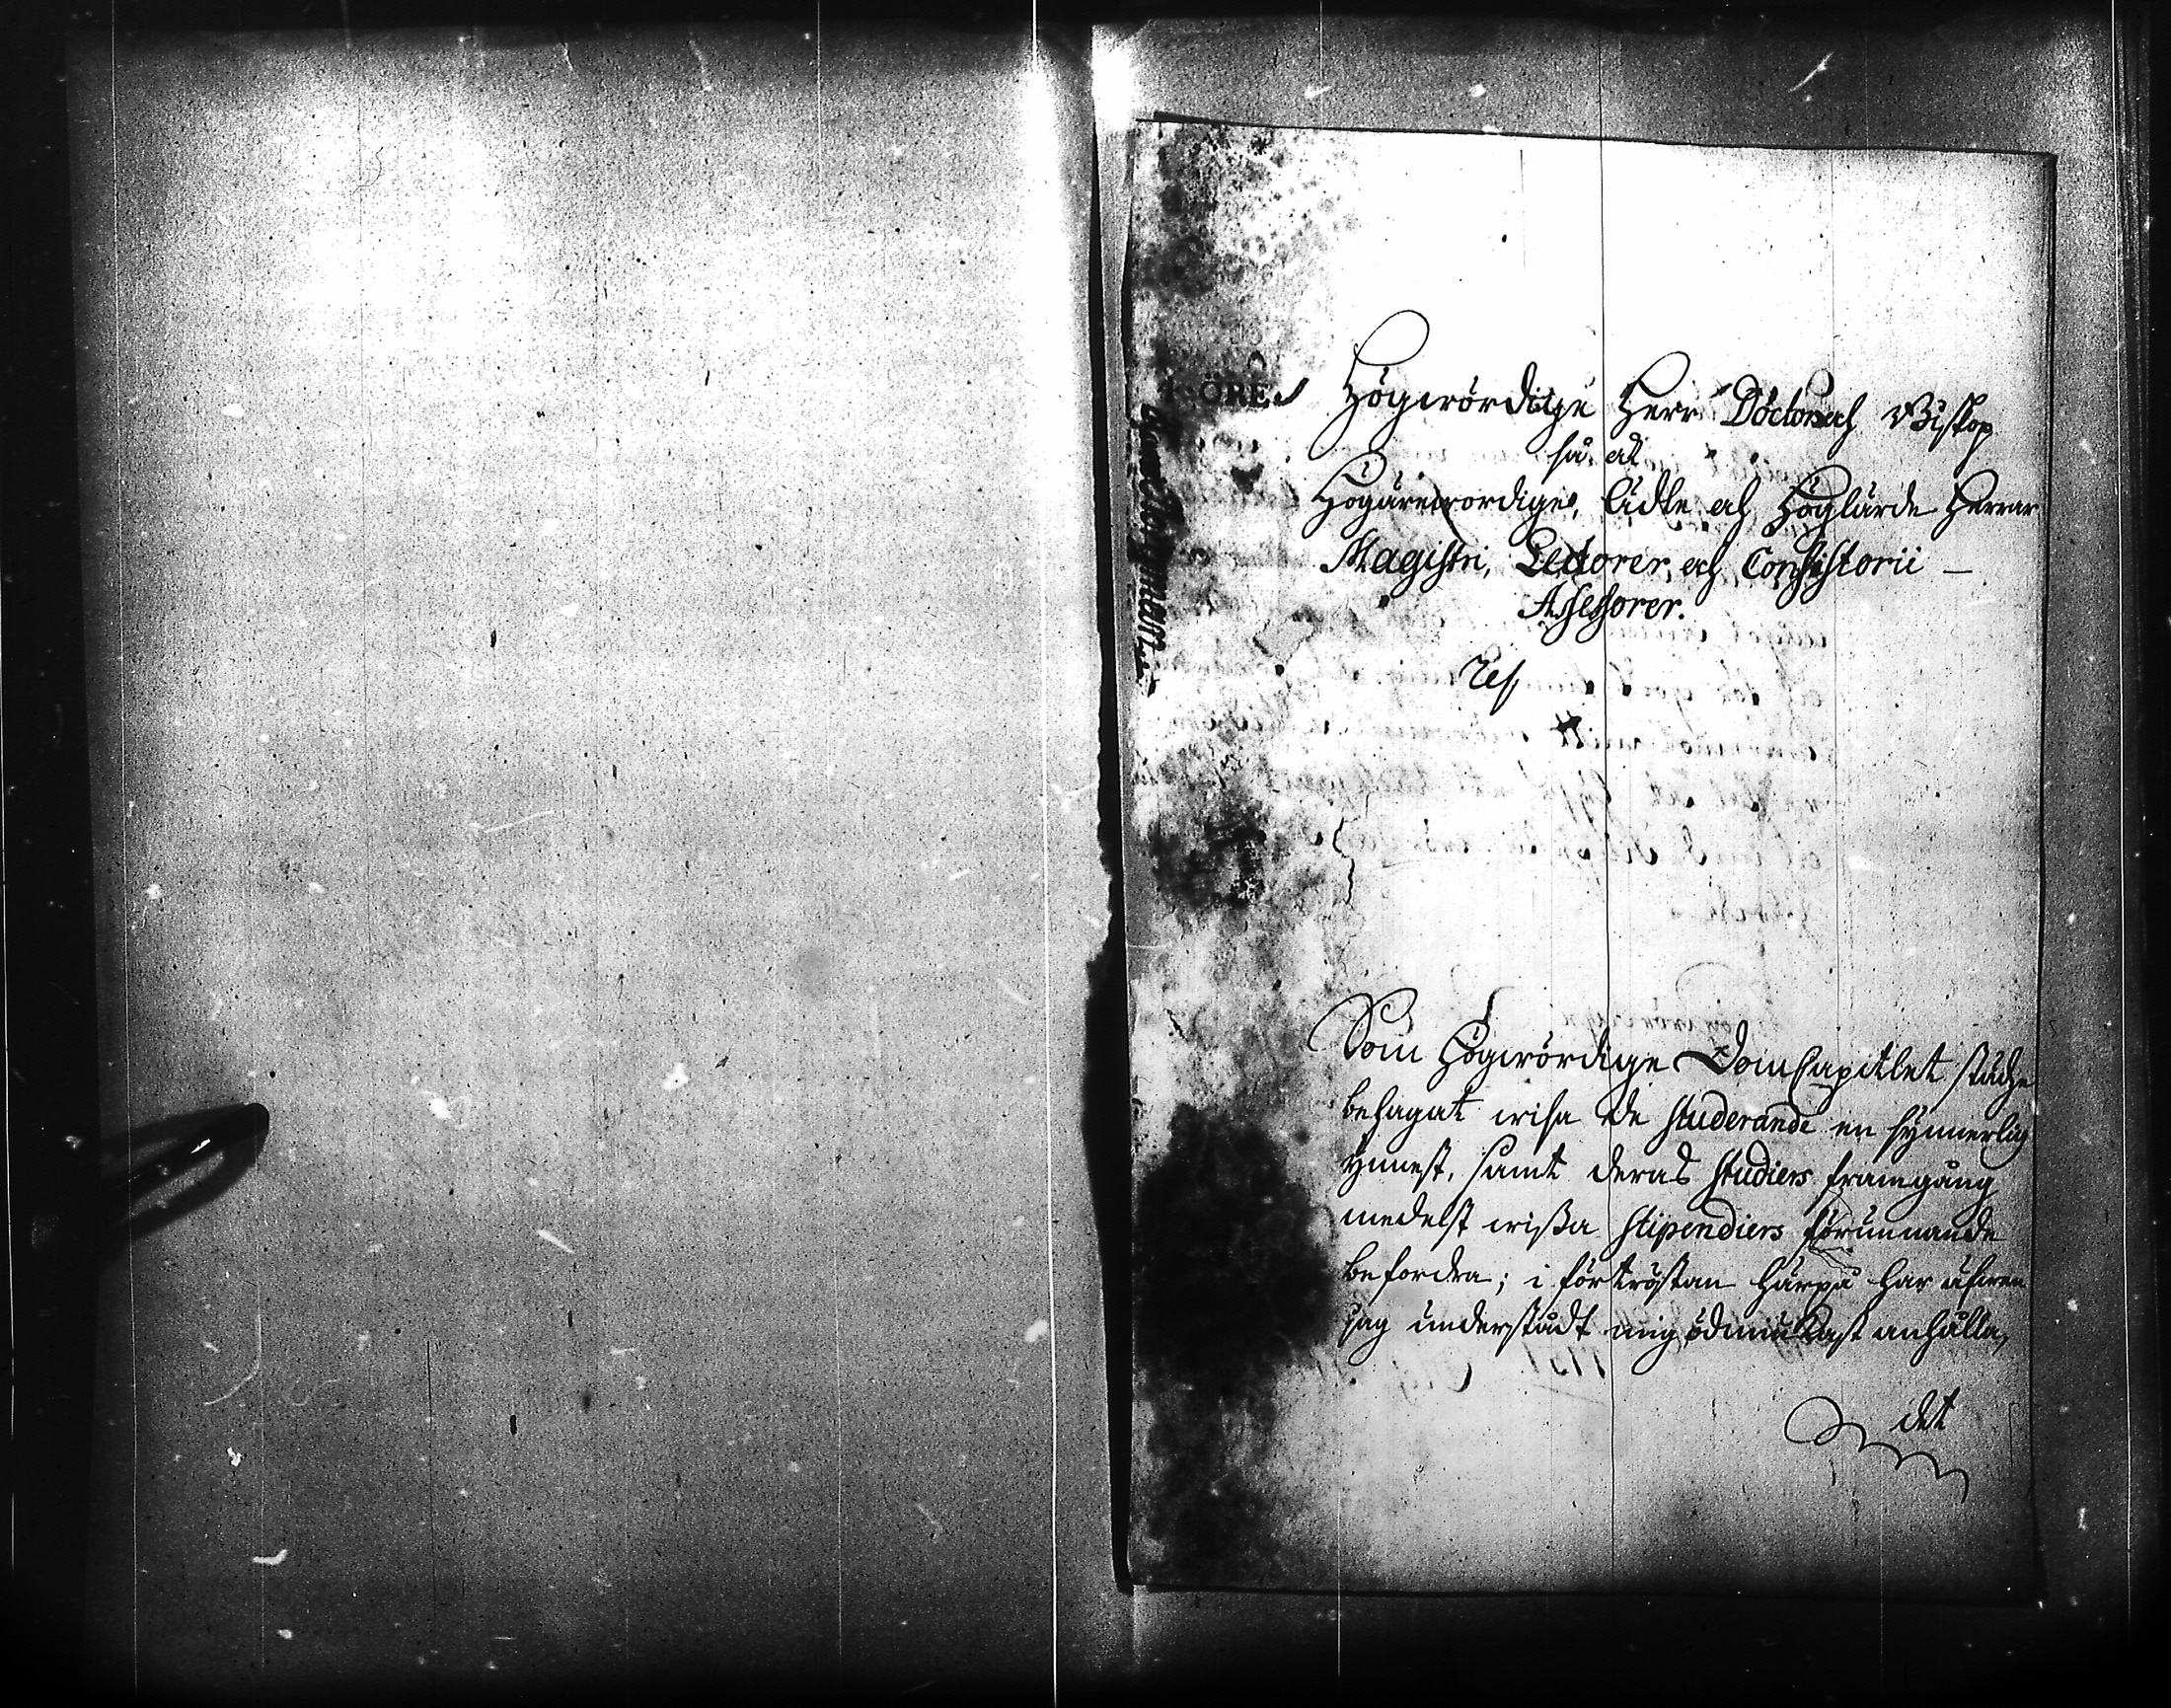 ÖRE.
Högwördige Herr Doctor och Biskop
så ock
Högärewördige, Ädle och Höglärde Herrar
Magistri, Lectorer och Consistorii
Assessorer.
Som Högwördige DomCapitlet städze
behagat wisa de studerande en synnerlig
ynnest, samt deras studiers framgång
medelst wißa stipendiers förunnande
befordra; i förtröstan härpå har äfwen
jag understådt mig ödmiukast anhålla,
det